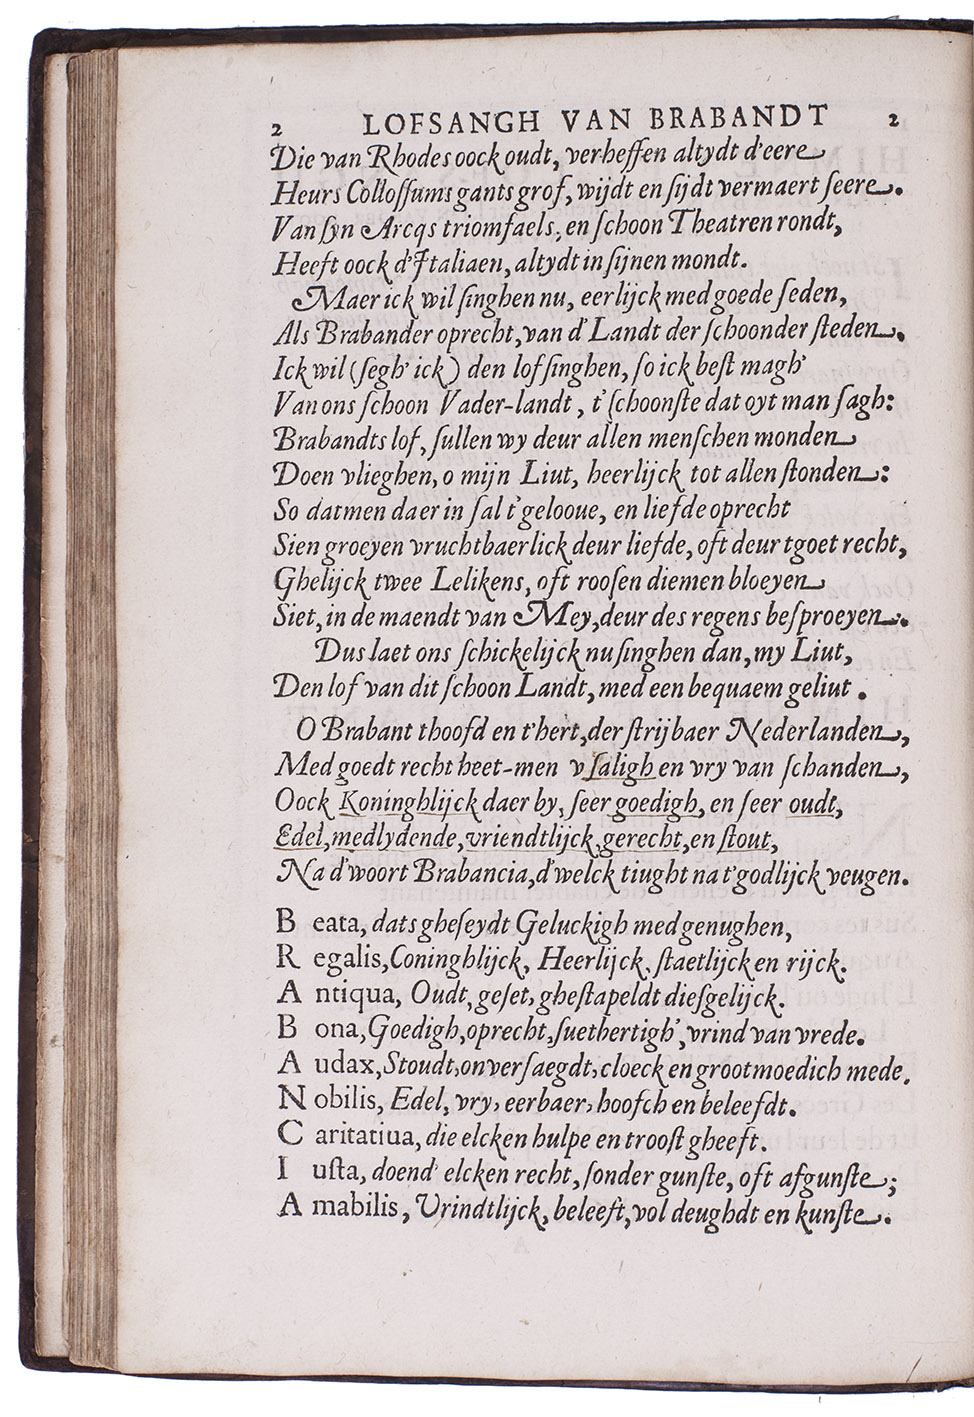 2 LOFSANGH VAN BRABANDT 2
Die van Rhodes oock oudt, verheffen altydt d'eere
Heurs Collossums gants grof, wijdt en sijdt vermaert seere.
Van syn Arcqs triomfaels, en schoon Theatren rondt,
Heeft oock d'Italiaen, altydt in sijnen mondt.
Maer ick wil singhen nu, eerlijck med goede seden,
Als Brabander oprecht, van d'Landt der schoonder steden.
Ick wil (segh' ick) den lof singhen, so ick best magh'
Van ons schoon Vader-landt, t'schoonste dat oyt man sagh:
Brabandts lof, sullen wy deur allen menschen monden
Doen vlieghen, o mijn Liut, heerlijck tot allen stonden:
So datmen daer in sal t'gelooue, en liefde oprecht
Sien groeyen vruchtbaerlick deur liefde, oft deur tgoet recht,
Ghelijck twee Lelikens, oft roosen diemen bloeyen
Siet, in de maendt van Mey, deur des regens besproeyen.
Dus laet ons schickelijck nu singhen dan, my Liut,
Den lof van dit schoon Landt, med een bequaem geliut.
O Brabant thoofd en t'hert, der strijbaer Nederlanden,
Med goedt recht heet-men v saligh en vry van schanden,
Oock Koninghlijck daer by, seer goedigh, en seer oudt,
Edel, medlydende, vriendtlijck, gerecht, en stout,
Na d'woort Brabancia, d'welck tiught na t'godlijck veugen.
B eata, dats gheseydt Geluckigh med genughen,
R egalis, Coninghlijck, Heerlijck, staetlijck en rijck.
A ntiqua, Oudt, geset, ghestapeldt diesgelijck.
B ona, Goedigh, oprecht, suethertigh', vrind van vrede.
A udax, Stoudt, onversaegdt, cloeck en grootmoedich mede.
N obilis, Edel, vry, eerbaer, hoofch en beleefdt.
C aritatiua, die elcken hulpe en troost gheeft.
I usta, doend' elcken recht, sonder gunste, oft afgunste;
A mabilis, Vrindtlijck, beleeft, vol deughdt en kunste.